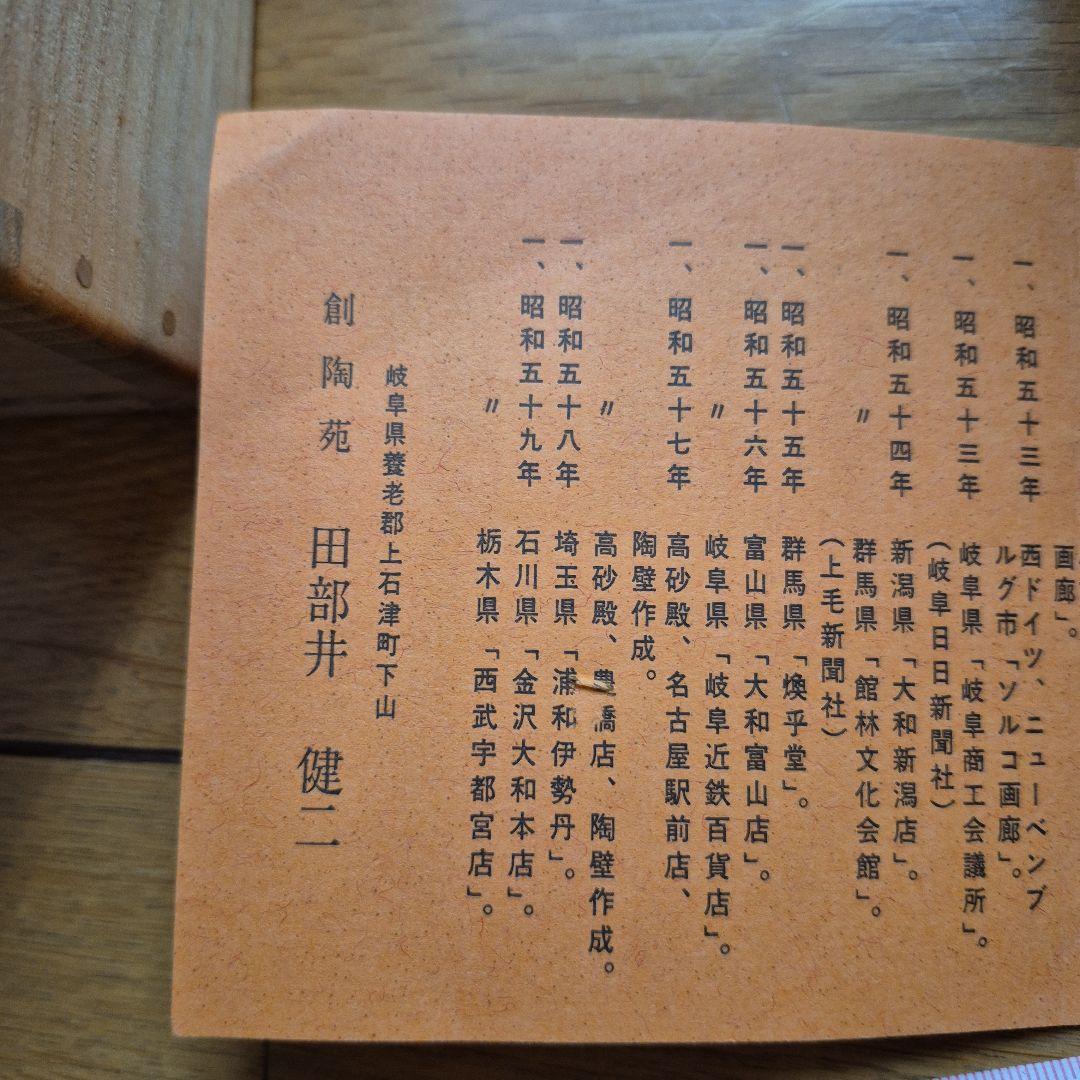 画廊」。
一、昭和五十三年　西ドイツ、ニューベンブ
ルグ市「ソルコ画廊」。
一、昭和五十三年　岐阜県「岐阜商工会議所」。
（岐阜日日新聞社）
一、昭和五十四年　新潟県「大和新潟店」。
〃　群馬県「館林文化会館」。
（上毛新聞社）
一、昭和五十五年　群馬県「煥乎堂」。
一、昭和五十六年　富山県「大和富山店」。
〃　岐阜県「岐阜近鉄百貨店」。
一、昭和五十七年　高砂殿、名古屋駅前店、
陶壁作成。
〃　高砂殿、豊橋店、陶壁作成。
一、昭和五十八年　埼玉県「浦和伊勢丹」。
一、昭和五十九年　石川県「金沢大和本店」。
〃　栃木県「西武宇都宮店」。
岐阜県養老郡上石津町下山
創陶苑　田部井　健二